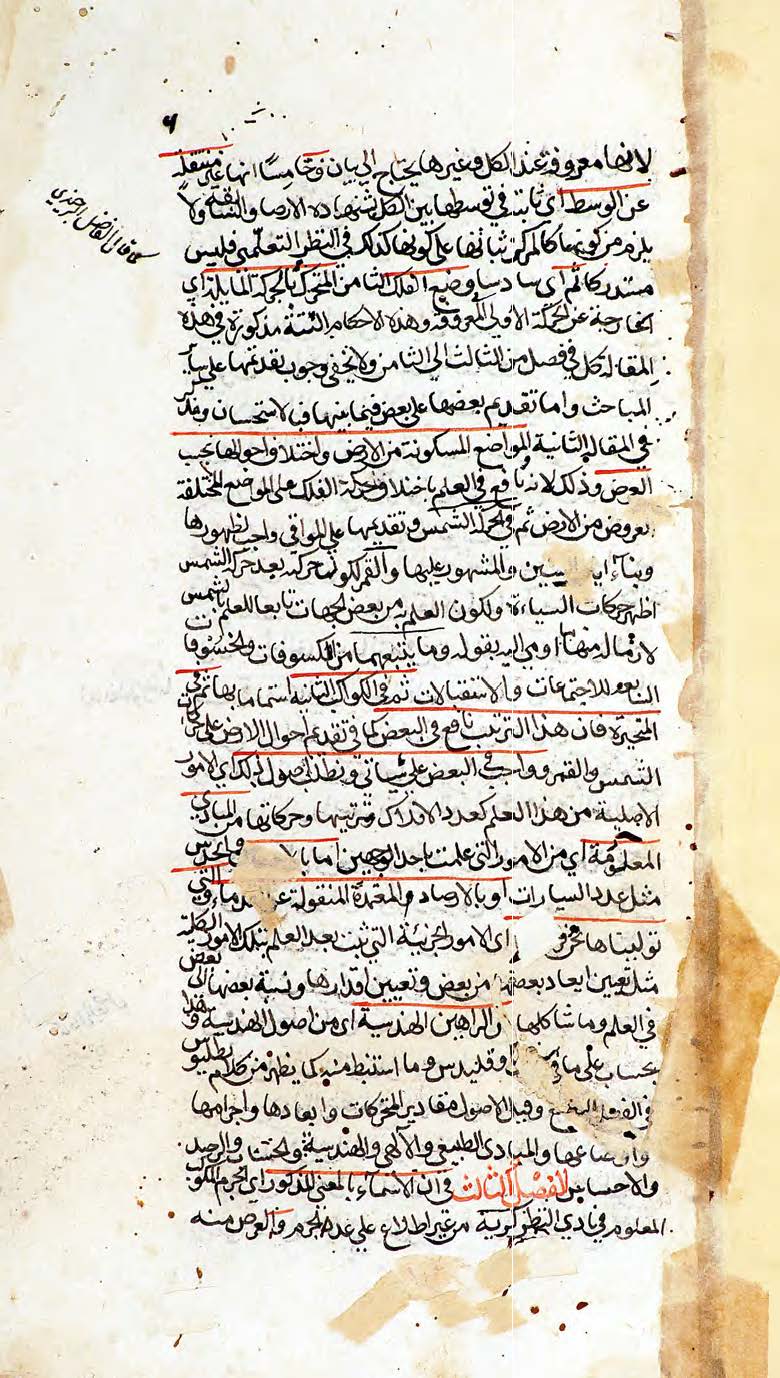 ٦
لانها معروفة عند الكل وغيرها يحتاج الى بيان وخامسا انها غير منتقلة
عن الوسط اى ثابتة في توسطها بين الكل تشهد بها دة الارصاد والسابقة ولا
كما قال الفاضل البرجندي
يلزم من كونها كالمركز ثباتها على كونها كذلك في النظر التعلمي فليس
مستدركا ثم اى سادسا وضع الفلك الثامن المتحرك بالحركة المايلة اى
الخارجة عن الحركة الاولى المعروفة وهذه الاحكام الستة مذكورة في هذه
المقالة كل في فصل من الثالث الى الثامن ولا يخفى وجوب تقدمها على سائر
المباحث واما تقديم بعضها على بعض فيما بينها فبالاستحسان
في المقالة الثانية المواضع المسكونة من الارض واختلاف احوالها بحسب
العرض وذلك لانه نافع في العلم باختلاف حركة الفلك على المواضع المختلفة
بعروض من الارض ثم في حركة الشمس وتقديمها على البواقي واجب لظهورها
وبناء والمشهور عليها والقمر لكون حركته بعد حركة الشمس
اظهر حركات السيارة ولكون العلم به من بعض الجهات تابعا للعلم بالشمس
اومى اليه بقوله وما يتبعهما من الكسوفات والخسوفات
التابعة للاجتماعات والاستقبالات ثم في الكواكب الثابتة استماما بها ثم في
المتحيرة فان هذا الترتيب نافع في البعض كما في تقديم احوال الارض على حركات
الشمس والقمر وواجب في البعض على ما سياتي ونطلب اصول ذلك اى الامور
الاصلية من هذا العلم كعدد الافلاك وترتيبها وحركاتها من المبادي
المعلومة اى من الامور التي علمت باحد الوجهين اما والحدس
مثل عدد السيارات او بالارصاد المعتمدة المنقولة عن القدماء والتي
توليناها نحن اى الامور الجزئية التي تثبت بعد العلم بتلك الامور الكلية
مثل تعيين ابعاد بعضها من بعض وتعيين اقدارها ونسبة بعضها الى بعض
في العلم وما شاكلها البراهين الهندسية اى من اصول الهندسية
بحساب على ما في اوقليدس وما استنبط منه كما يظهر من كلام بطليموس
في الفصل وقبل الاصول مقادير المتحركات وابعادها واجرامها
واوضاعها والمبادى الطبيعي والآلهي والهندسية والحساب والرصد
والاحساس الفصل الثالث في ان السماء بالمعنى المذكور اى الجرم
المعلوم في بادي النظر كرية من غير اطلاع على عدة الجرم والغرض منه